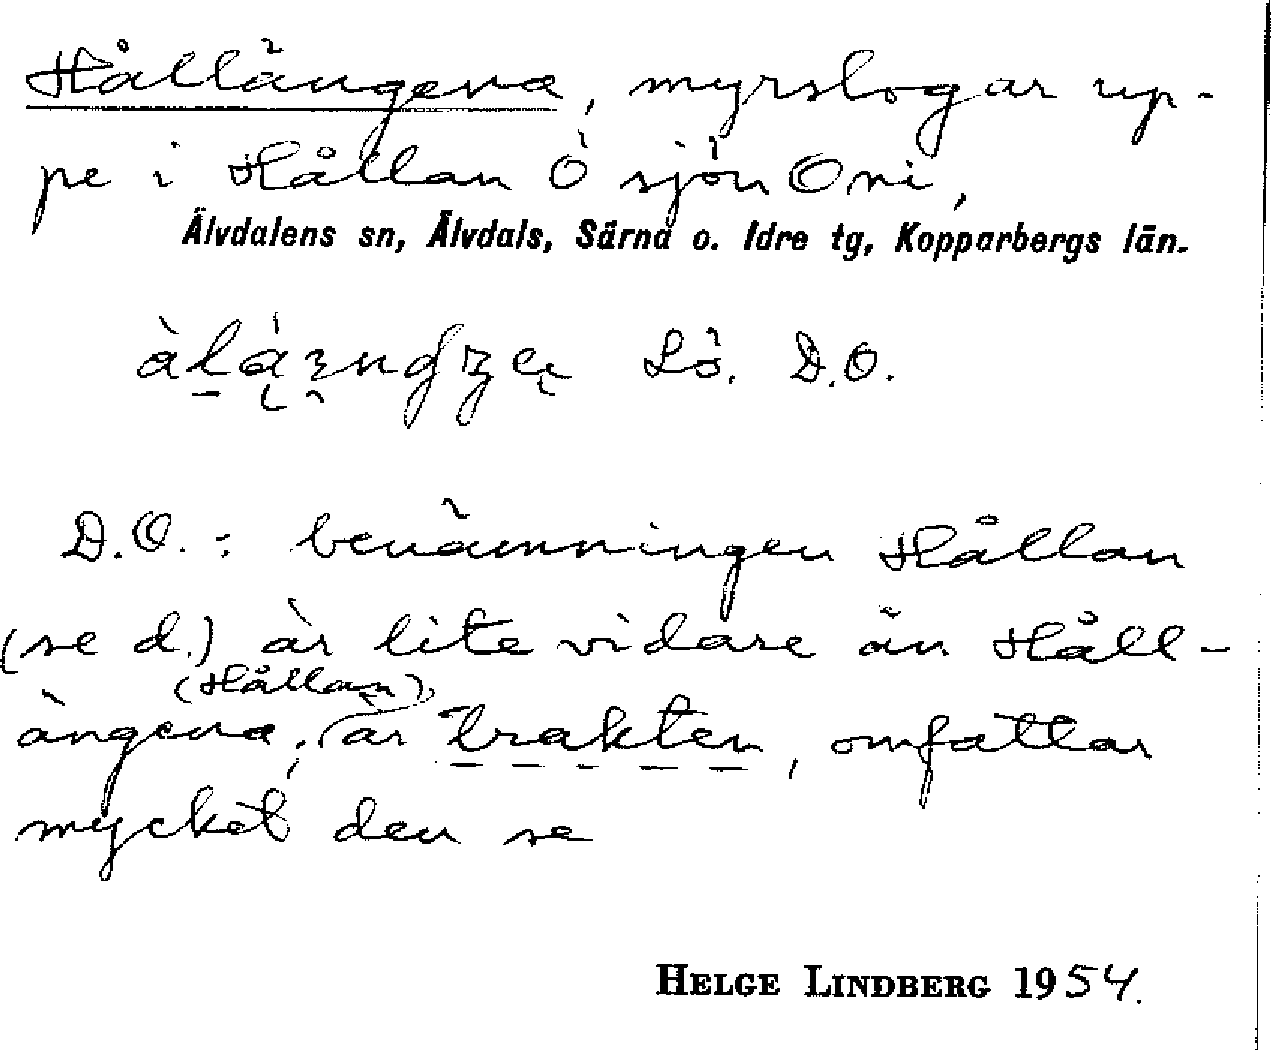 Hållängena, myrslogar up-
pe i Hållan Ö sjön Oni,
Älvdalens sn, Älvdals, Särna o. Idre tg, Kopparbergs län.
Lö. D.O.
D.O. : benämningen Hållan
(se d.) är lite vidare än Håll-
(Hållan)
ängena; är trakten, omfattar
mycket den se
HELGE LINDBERG 1954.